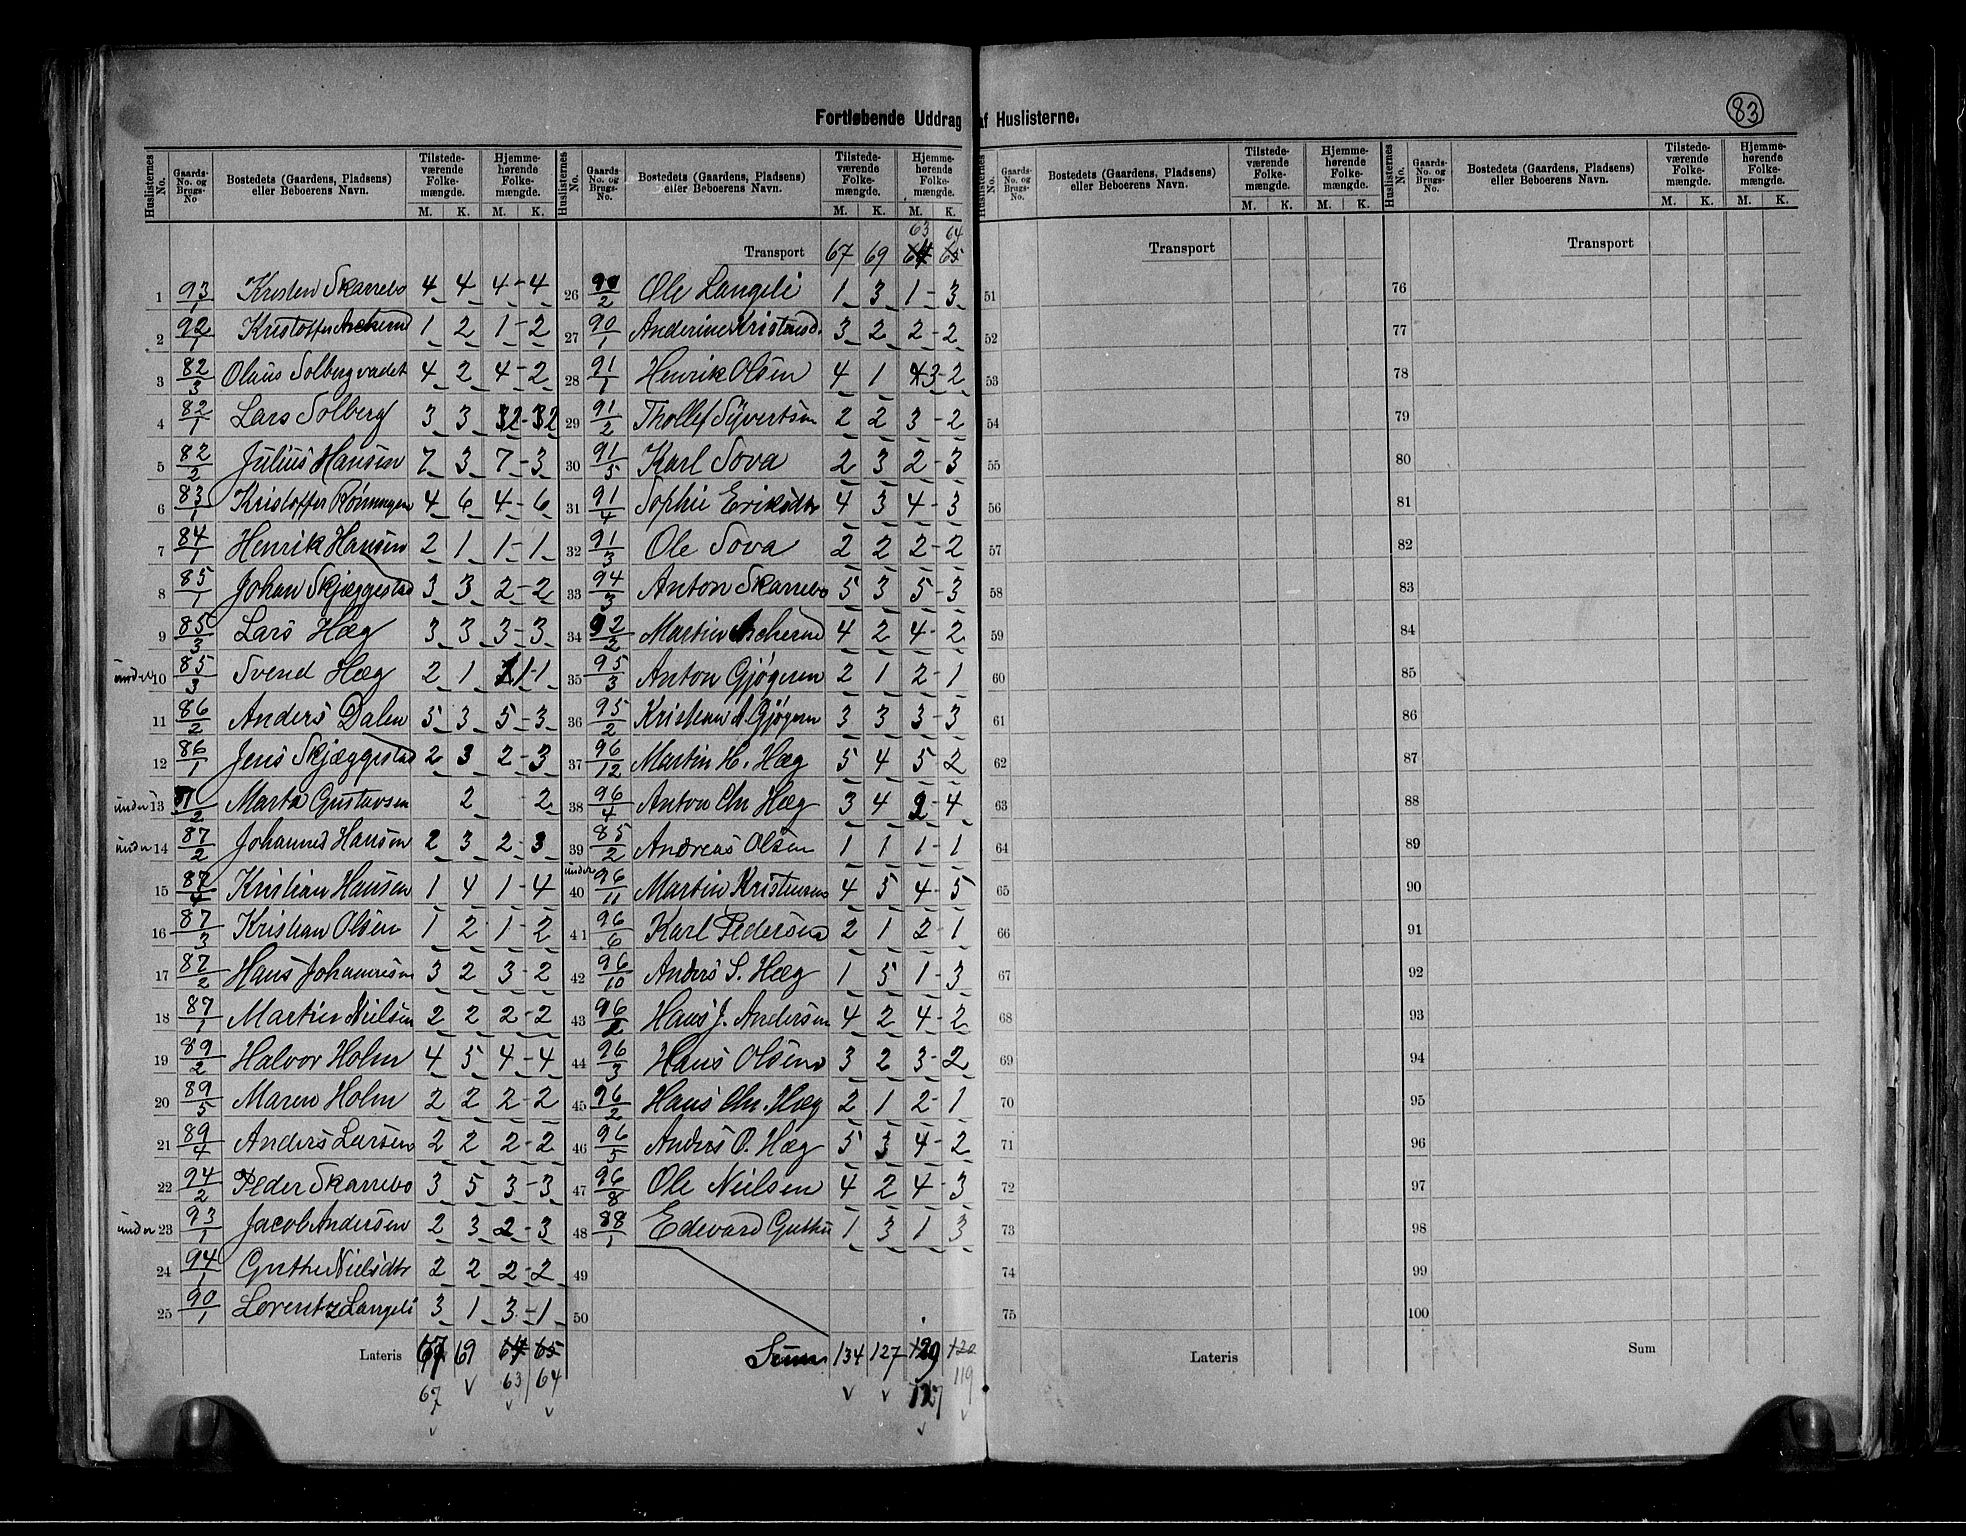 Fortløbende Uddrag af Huslisterne.
83
Huslisternes No. | Gaards-No. og Brugs-No | Bostedets (Gaardens, Pladsens) eller Beboerens Navn. | Tilstedeværende Folkemængde. M. K. | Hjemmehørende Folkemængde. M. K.
1 93/1 Kristen Skarrebo 4 4 4-4
2 92/1 Kristoffer 1 2 1-2
3 82/3 Olaus Solbergvadet 4 2 4-2
4 82/1 Lars Solberg 3 3 32-32
5 82/2 Julius Hansen 7 3 7-3
6 83/1 Kristoffer Rönningen 4 6 4-6
7 84/1 Henrik Hansen 2 1 1-1
8 85/1 Johan Skjæggestad 3 3 2-2
9 85/3 Lars Hæg 3 3 3-3
under 10 85/3 Svend Hæg 2 1 1-1
11 86/2 Anders Dalen 5 3 5-3
12 86/1 Jens Skjæggestad 2 3 2-3
under 13 Marta Gustavsen 2 2
under 14 87/2 Johannes Hansen 2 3 2-3
15 87/4 Kristian Hansen 1 4 1-4
16 87/3 Kristian Olsen 1 2 1-2
17 87/2 Hans Johannesen 3 2 3-2
18 87/1 Martin Nielsen 2 2 2-2
19 89/2 Halvor Holm 4 5 4-4
20 89/5 Maren Holm 2 2 2-2
21 89/4 Anders Larsen 2 2 2-2
22 94/2 Peder Skarrebo 3 5 3-3
under 23 93/1 Jacob Andersen 2 3 2-3
24 94/1 Gnthe Nielsdtr 2 2 2-2
25 90/1 Lorentz Langeli 3 1 3-1
Lateris 67 69 64 65
67 63/64
Huslisternes No. | Gaards-No. og Brugs-No. | Bostedets (Gaardens, Pladsens) eller Beboerens Navn. | Tilstedeværende Folkemængde. M. K. | Hjemmehørende Folkemængde. M. K.
63 64
Transport 67 69 64 65
26 90/2 Ole Langeli 1 3 1-3
27 90/1 Anderine Kristensd. 3 2 2-2
28 91/1 Henrik Olsen 4 1 43-2
29 91/2 Thollef Syvertsen 2 2 3-2
30 91/5 Karl Sova 2 3 2-3
31 91/4 Sophie Eriksdtr 4 3 4-3
32 91/3 Ole Sova 2 2 2-2
33 94/3 Anton Skarrebo 5 3 5-3
34 92/2 Martin 4 2 4-2
35 95/3 Anton Gjøgeren 2 1 2-1
36 95/2 Kristian A Gjøgeren 3 3 3-3
37 96/12 Martin H. Hæg 5 4 5-2
38 96/4 Anton Chr Hæg 3 4 2-4
39 85/2 Andreas Olsen 1 1 1-1
under 40 96/11 Martin Kristensen 4 5 4-5
41 96/6 Karl Pedersen 2 1 2-1
42 96/10 Anders S. Hæg 1 5 1-3
43 96/2 Hans J. Andersen 4 2 4-2
44 96/3 Hans Olsen 3 2 3-2
45 96/2 Hans Chr. Hæg 2 1 2-1
46 96/5 Anders O. Hæg 5 3 4-2
47 96/8 Ole Nielsen 4 2 4-3
48 88/1 Edevard Guthu 1 3 1 3
49
50
Sum 134 127 129 120
127 119
Huslisternes No. | Gaards-No. og Brugs-No. | Bostedets (Gaardens, Pladsens) eller Beboerens Navn. | Tilstedeværende Folkemængde. M. K. | Hjemmehørende Folkemængde. M. K.
Transport
51
52
53
54
55
56
57
58
59
60
61
62
63
64
65
66
67
68
69
70
71
72
73
74
75
Lateris
Huslisternes No. | Gaards-No. og Brugs-No. | Bostedets (Gaardens, Pladsens) eller Beboerens Navn. | Tilstedeværende Folkemængde. M. K. | Hjemmehørende Folkemængde. M. K.
Transport
76
77
78
79
80
81
82
83
84
85
86
87
88
89
90
91
92
93
94
95
96
97
98
99
100
Sum